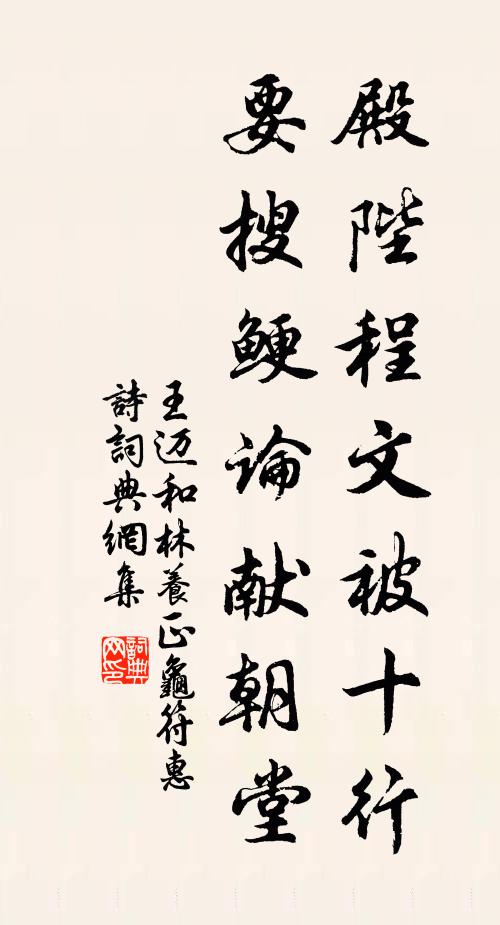 殿陛程文被十行
要搜鲠论献朝堂
王迈和林養正龜符惠
詩詞典網集
詞典网印